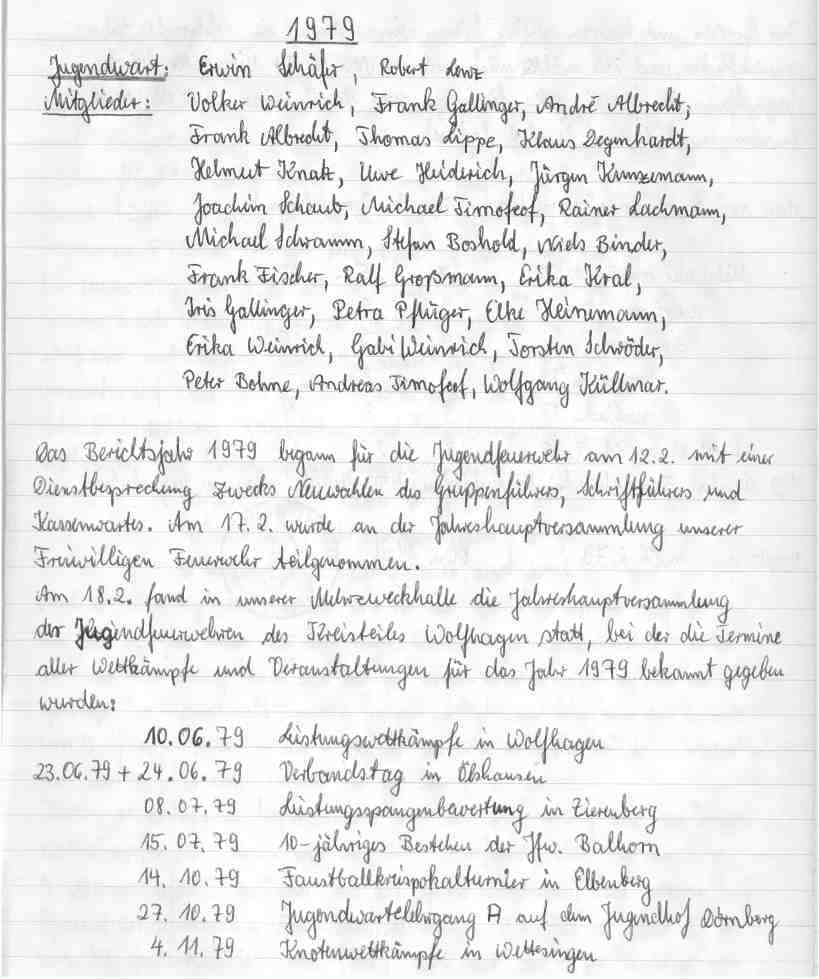 1979
Jugendwart: Erwin Schäfer, Robert Lenz
Mitglieder: Volker Weinrich, Frank Gallinger, André Albrecht,
Frank Albrecht, Thomas Lippe, Klaus Degenhardt,
Helmut Knatz, Uwe Heiderich, Jürgen Kunzemann,
Joachim Schaub, Michael Timofeof, Rainer Lachmann,
Michael Schramm, Stefan Boshold, Niels Binder,
Frank Fischer, Ralf Großmann, Erika Kral,
Iris Gallinger, Petra Pflüger, Elke Heinemann,
Erika Weinrich, Gabi Weinrich, Torsten Schröder,
Peter Bohne, Andreas Timofeof, Wolfgang Küllmar.
Das Berichtsjahr 1979 begann für die Jugendfeuerwehr am 12.2. mit einer
Dienstbesprechung zwecks Neuwahlen des Gruppenführers, Schriftführers und
Kassenwartes. Am 17.2. wurde an der Jahreshauptversammlung unserer
Freiwilligen Feuerwehr teilgenommen.
Am 18.2. fand in unserer Mehrzweckhalle die Jahreshauptversammlung
der Jugendfeuerwehren des Kreisteiles Wolfhagen statt, bei der die Termine
aller Wettkämpfe und Veranstaltungen für das Jahr 1979 bekannt gegeben
wurden:
10.06.79 Leistungswettkämpfe in Wolfhagen
23.06.79 + 24.06.79 Verbandstag in Elshausen
08.07.79 Leistungsspangenbewertung in Zierenberg
15.07.79 10-jähriges Bestehen der Jfw. Balhorn
14.10.79 Faustballkreispokalturnier in Elbenberg
27.10.79 Jugendwartelehrgang A auf dem Jugendhof Dörnberg
4.11.79 Knotenwettkämpfe in Wettesingen